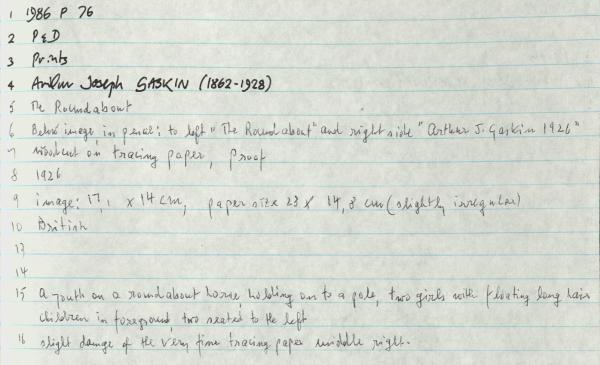 1 1986 P 76
2 P&D
3 Prints
4 Arthur Joseph GASKIN (1862-1928)
5 The Roundabout
6 Below image, in pencil: to left "The Roundabout" and right side "Arthur J. Gaskin 1926"
7 woodcut on tracing paper, proof
8 1926
9 image: 17,1 x 14 cm, paper size 23 x 14,8 cm (slightly irregular)
10 British
13
14
15 a youth on a roundabout horse, holding on to a pole, two girls with floating long hair
children in foreground, two seated to the left
16 slight damge of the very fine tracing paper middle right.